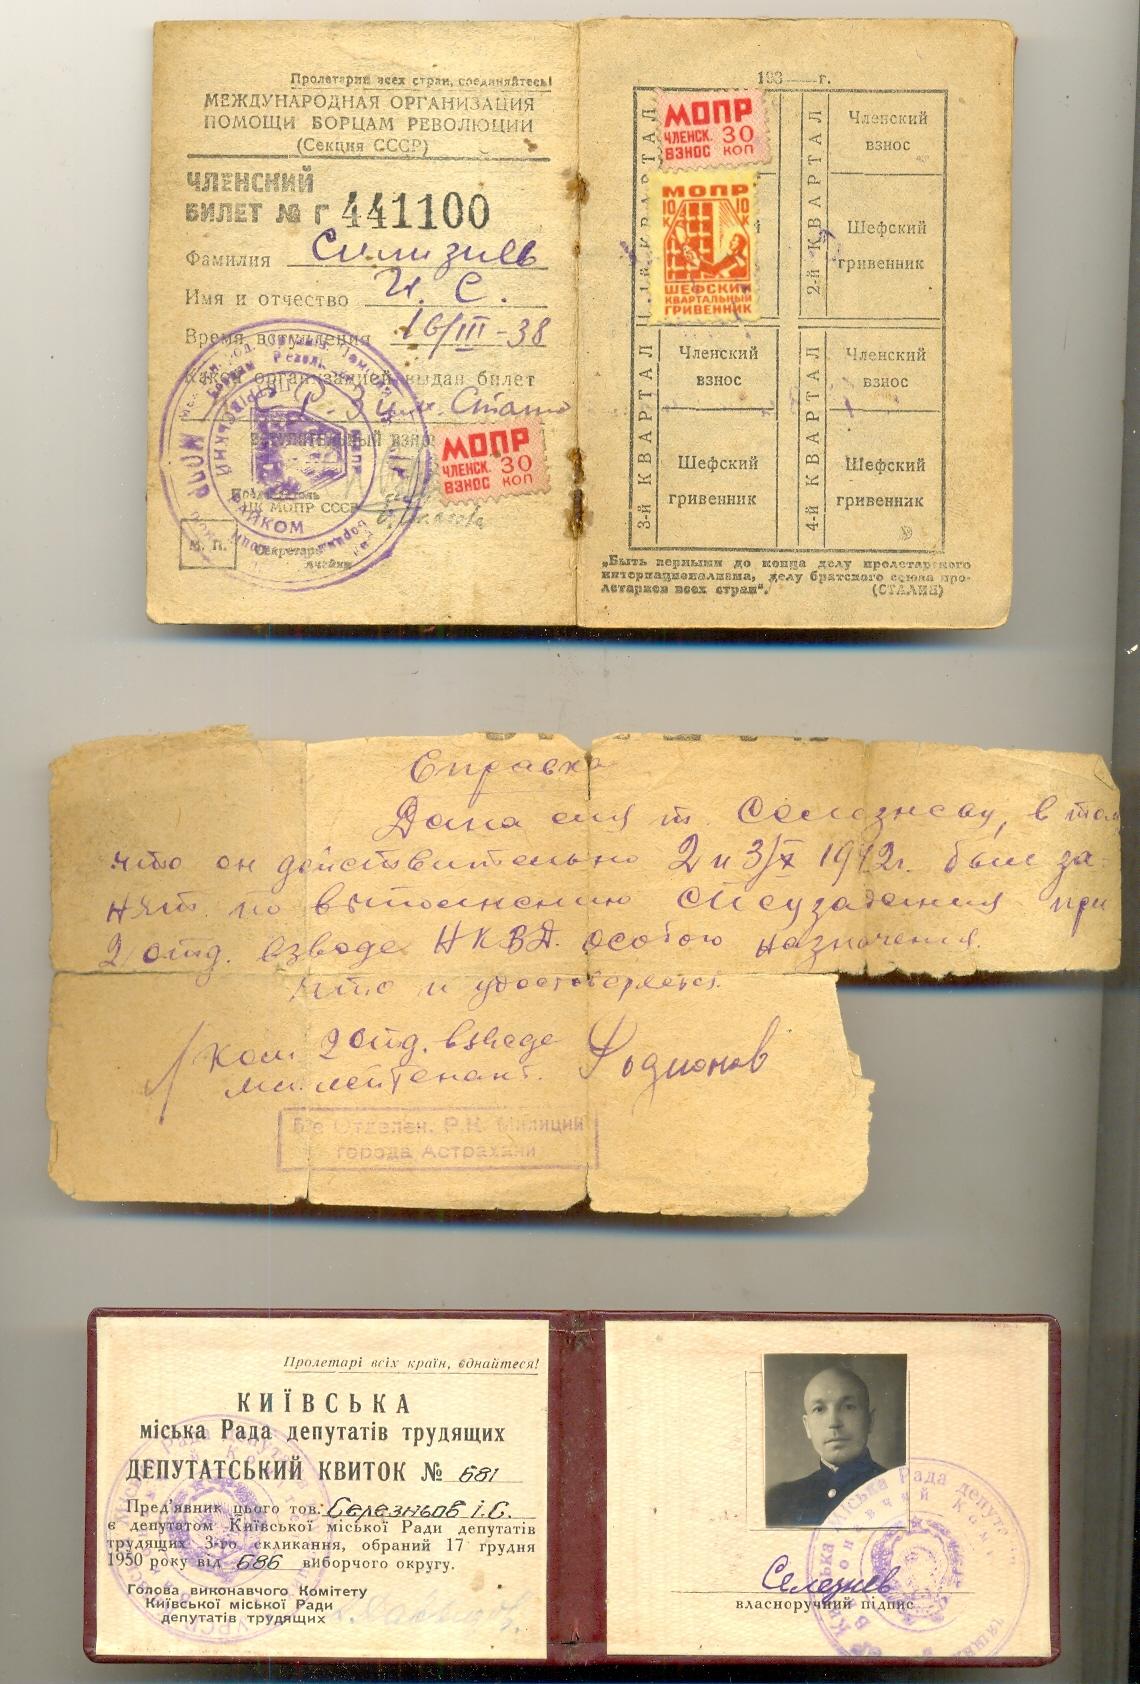 Пролетарии всех стран, соединяйтесь!
МЕЖДУНАРОДНАЯ ОРГАНИЗАЦИЯ
ПОМОЩИ БОРЦАМ РЕВОЛЮЦИИ
(Секция СССР)
ЧЛЕНСКИЙ
БИЛЕТ № Г 441100
Фамилия
Имя и отчество И. С.
Время вступления 16/III-38
Какой организацией выдан билет
МОПР
ЧЛЕНСК. 30
ВЗНОС КОП
ЦК МОПР СССР
М. П.
Секретарь
ячейки
193 г.
МОПР
ЧЛЕНСК. 30
ВЗНОС КОП
МОПР
10 К 10 К
ШЕФСКИЙ
КВАРТАЛЬНЫЙ
ГРИВЕННИК
1-й КВАРТАЛ
2-й КВАРТАЛ
Членский
взнос
Шефский
гривенник
3-й КВАРТАЛ
Членский
взнос
Шефский
гривенник
4-й КВАРТАЛ
Членский
взнос
Шефский
гривенник
„Быть верными до конца делу пролетарского
интернационализма, делу братского союза про-
летариев всех стран“.
(СТАЛИН)
Справка
Дана сия т. Селезневу, в том
что он действительно 2 и 3/X 1942г. был за-
нят по выполнению спецзадания при
2 отд. взводе НКВД. особого назначения.
что и удостоверяется.
Ком. 2 отд. взвода
мл. лейтенант. Родионов
Отделен. Р.К. Милиции
города Астрахани
Пролетарі всіх країн, єднайтеся!
КИЇВСЬКА
міська Рада депутатів трудящих
ДЕПУТАТСЬКИЙ КВИТОК № 681
Пред'явник цього тов. Селезньов І.С.
є депутатом Київської міської Ради депутатів
трудящих 3-го скликання, обраний 17 грудня
1950 року від 686 виборчого округу.
Голова виконавчого Комітету
Київської міської Ради
депутатів трудящих
Селезнев
власноручний підпис